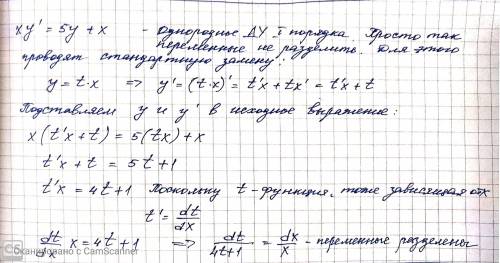 xy' = 5y + x - однородные ДУ I порядка. Просто так
переменные не разделить. Для этого
проводят стандартную замену:
y = t·x => y' = (t·x)' = t'x + tx' = t'x + t
Подставляем y и y' в исходное выражение:
x(t'x + t) = 5(tx) + x
t'x + t = 5t + 1
t'x = 4t + 1 Поскольку t - функция, тоже зависящая от x
t' = dt/dx
dt/dx x = 4t + 1 => dt/(4t+1) = dx/x - переменные разделены
CS Сканировано с CamScanner